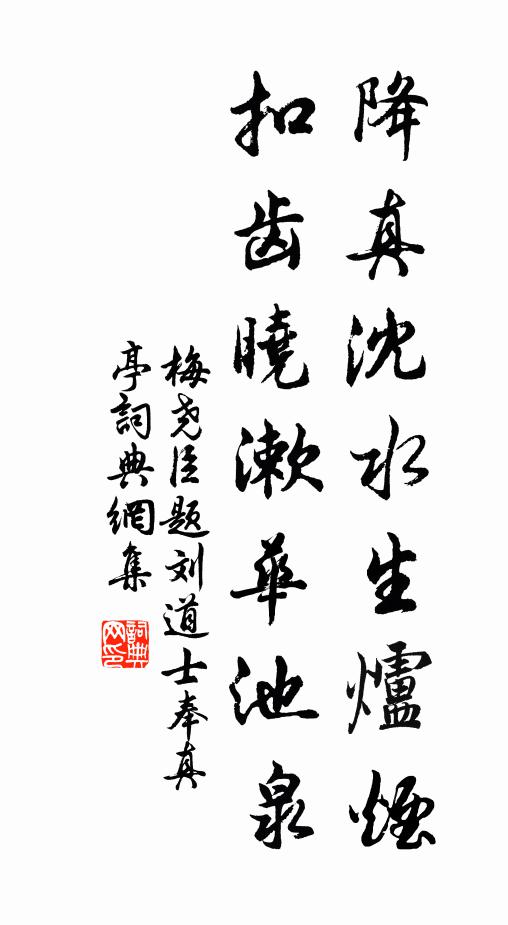 降真沈水生爐煙
扣齿曉漱華池泉
梅尧臣题刘道士奉真
亭詞典網集
詞典网印